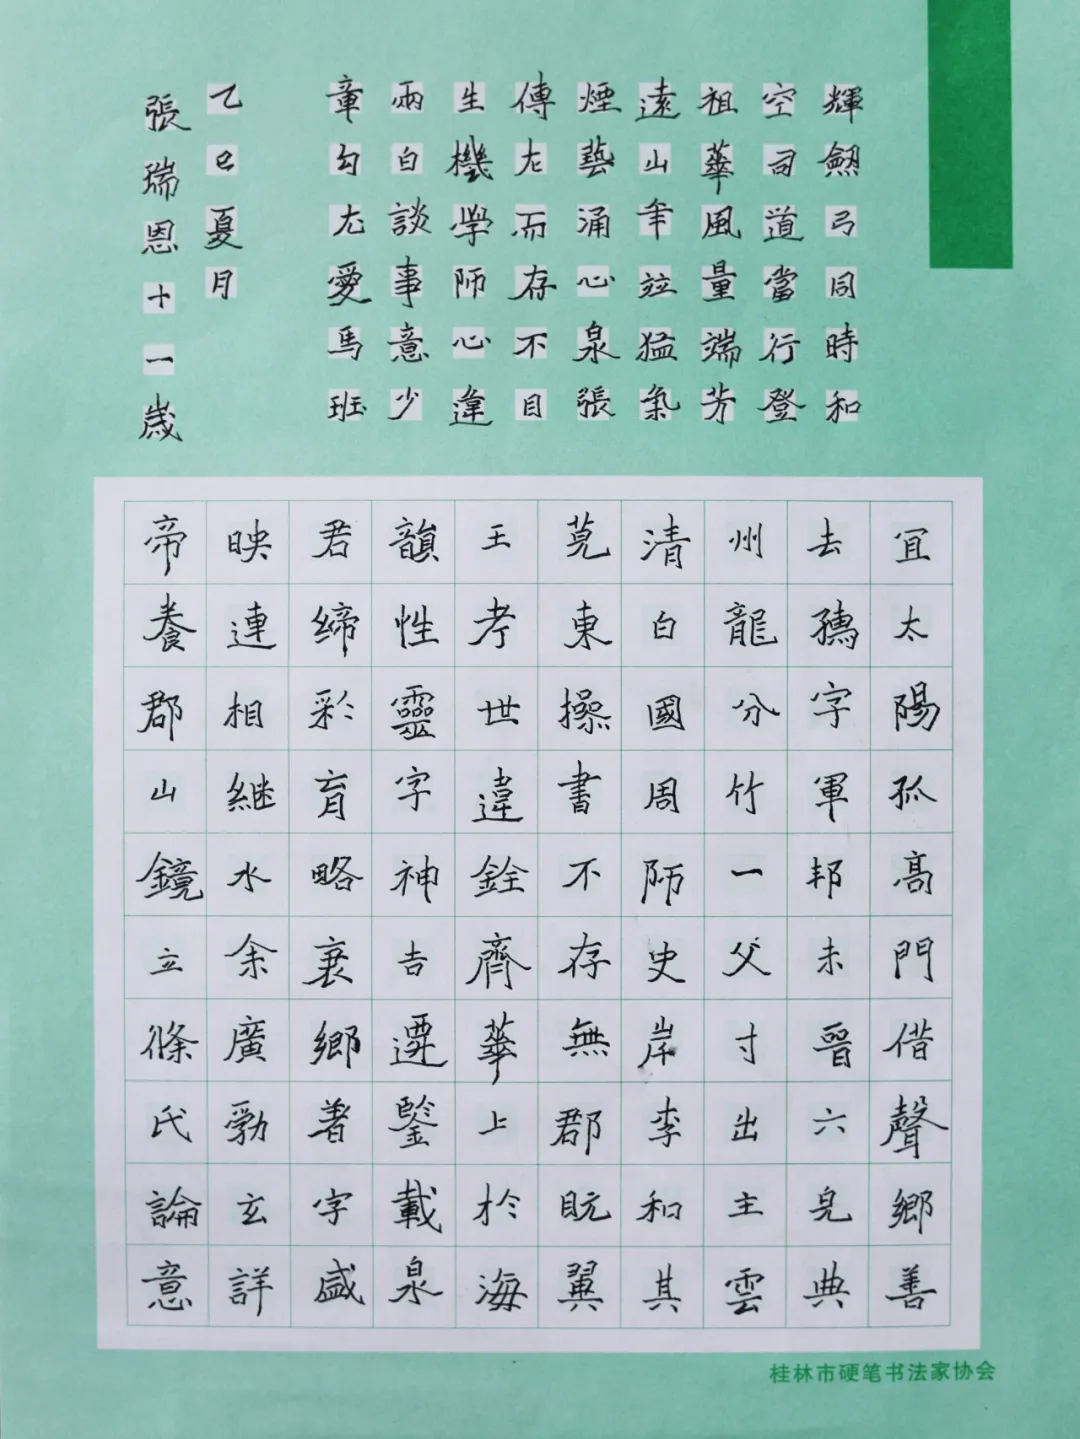 輝劔弓同時和
空司道當行登
祖華風量端芳
遠山年竝猛氣
煙藝涌心泉張
傳尤而存不目
生機學師心違
兩白談事意少
章勾尤愛馬班
乙巳夏月
張瑞恩十一歲
宜太陽孤高門借聲鄉善
去字軍邦未晉六皃典
州龍分竹一父寸出主雲
清白國周師史岸李和其
莧東操書不存無郡既翼
王孝世違銓齊華上於海
韻性靈字神吉遷鑒載泉
君締彩育略衰鄉著字盛
映連相繼水余廣勤玄詳
帝養郡山鏡立條氏論意
桂林市硬笔书法家协会